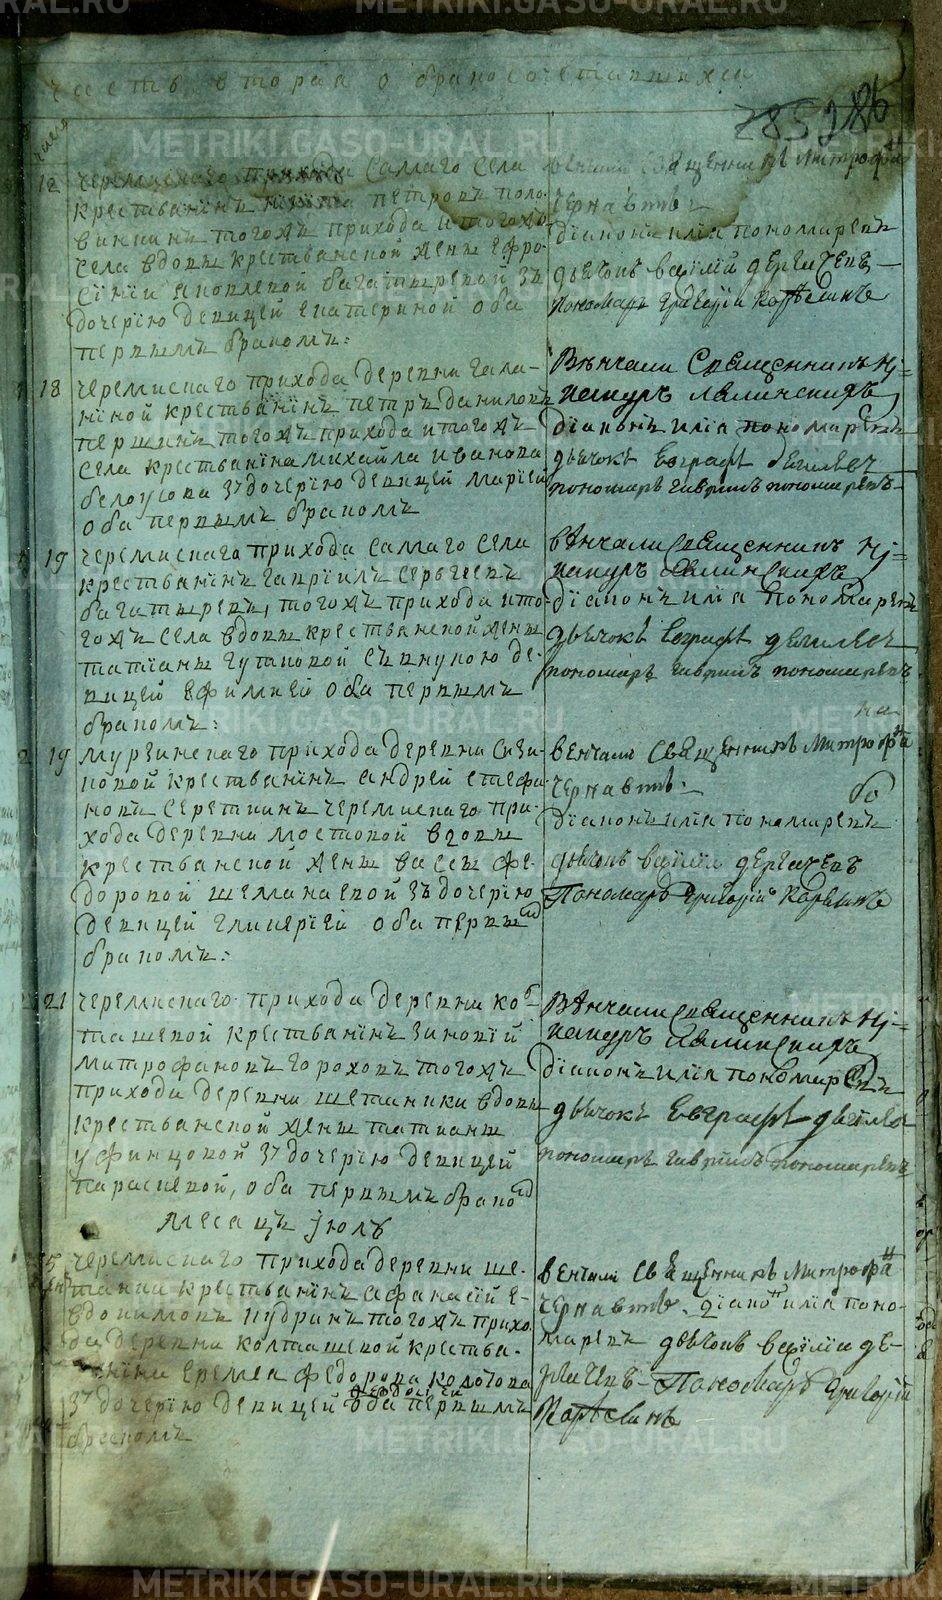 часть вторая о бракосочетавшихся
числа
285 286
12 черемискаго прихода самаго села
крестьянинъ никита петровъ поло-
винкинъ тогожъ прихода и тогожъ
села вдовы крестьянской жены ефро-
сінїи яковлевой багатыревой зъ
дочерїю девицей екатериной оба
первымъ бракомъ:
венчали священникъ митрофанъ
чернавинъ
дїаконъ илїа пономаревъ
дьячокъ василїй дергачевъ
пономарь григорїй коряхинъ
18 черемискаго прихода деревни гала-
ниной крестьянїнъ петръ даниловъ
першинъ тогожъ прихода и тогожъ
села крестьянїна михайла иванова
белоусова зъ дочерїю девицей марїей
оба первымъ бракомъ
Вѣнчали священникъ Ні-
каноръ
дїаконъ илїа пономаревъ
дьячокъ Евграфъ
пономарь гаврїилъ пономаревъ
19 черемискаго прихода самаго села
крестьянинъ гаврїилъ сергеевъ
багатыревъ, тогожъ прихода и то-
гожъ села вдовы крестьянской жены
татїаны гутановой съ внукою де-
вицей ефимией оба первымъ
бракомъ:
вѣнчали священникъ Ні-
каноръ
дїаконъ илїа пономаревъ
дьячокъ Евграфъ
пономарь гаврїилъ пономаревъ
2 19 мурзинскаго прихода деревни сизи-
ковой крестьянїнъ андрей стефа-
новъ серетинъ черемискаго при-
хода деревни мостовой вдовы
крестьянской жены вассы фе-
доровой шеманаевой зъ дочерїю
девицей гликерїей оба первымъ
бракомъ:
венчали священникъ митрофанъ
чернавинъ
дїаконъ илїа пономаревъ
дьячокъ василїй дергачевъ
Пономарь григорїй Коряхинъ
21 черемискаго прихода деревни кол-
ташевой крестьянїнъ зиновїй
митрофановъ гороховъ тогожъ
прихода деревни шетаники вдовы
крестьянской жены татианы
уфинцовой зъ дочерїю девицей
параскевой, оба первымъ бракомъ
Вѣнчали священникъ Ні-
каноръ
дїаконъ илїа пономаревъ
дьячокъ Евграфъ
пономарь гаврїилъ пономаревъ
месяцъ іюль
5 черемискаго прихода деревни ше-
танки крестьянинъ афанасїй е-
вдокимовъ кудринъ тогожъ прихо-
да деревни колташевой крестья-
нїна еремея федорова колотова
федосїей
зъ дочерїю девицей оба первымъ
бракомъ
венчали священникъ митрофанъ
чернавинъ дїаконъ илїа поно-
маревъ дьячокъ василїй де-
ргачевъ Пономарь григорїй
Коряхинъ
METRIKI.GASO-URAL.RU